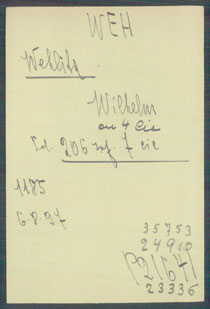 WEH
Wehlitz
Wilhelm
on 4 Cie
Fol. 206 inf. 7 cie
1185
6.8.97
35753
24910
P21641
23336